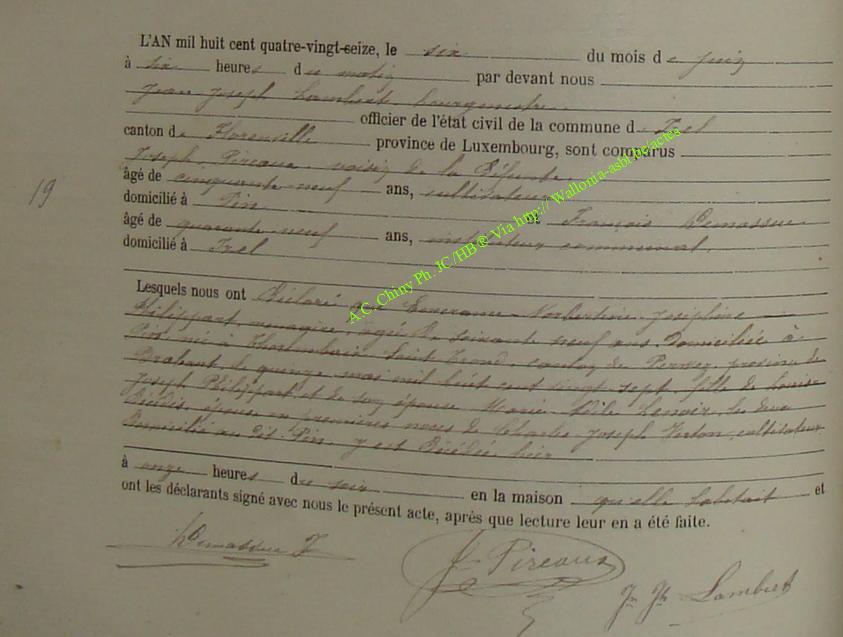 L'AN mil huit cent quatre-vingt-seize, le six du mois de juin
à six heures du matin par devant nous
Jean Joseph Lambert bourgmestre
officier de l'état civil de la commune d'Izel
canton de Florenville province de Luxembourg, sont comparus
Joseph Pireaux, voisin de la Défunte,
âgé de cinquante-neuf ans, cultivateur
domicilié à Pin et François Demasseu
âgé de quarante neuf ans, instituteur communal,
domicilié à Izel
19
Lesquels nous ont Déclaré que Emerance Norbertine Josephine
Philippart, ménagère, agée de soixante neuf ans, Domiciliée à
Pin, née à Thorembais Saint Trond, canton de Perwez, province de
Brabant, le quinze mai mil huit cent vingt sept, fille de Louis
Joseph Philippart et de son épouse Marie Lenoir, les deux
Décédés, épouse en premières noces de Charles Joseph cultivateur
Domicilié au dit Pin y est Décédée hier
à onze heures du soir en la maison qu'elle habitait et
ont les déclarants signé avec nous le présent acte, après que lecture leur en a été faite.
Demasseu F
J. Pireaux
Jn Jh Lambert
A C. Chiny Ph. JC/HB® Via http:// Wallonia-asbl.be/actes